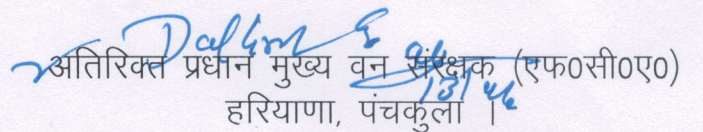 अतिरिक्त प्रधान मुख्य वन संरक्षक (एफ0सी0ए0)
हरियाणा, पंचकुला ।